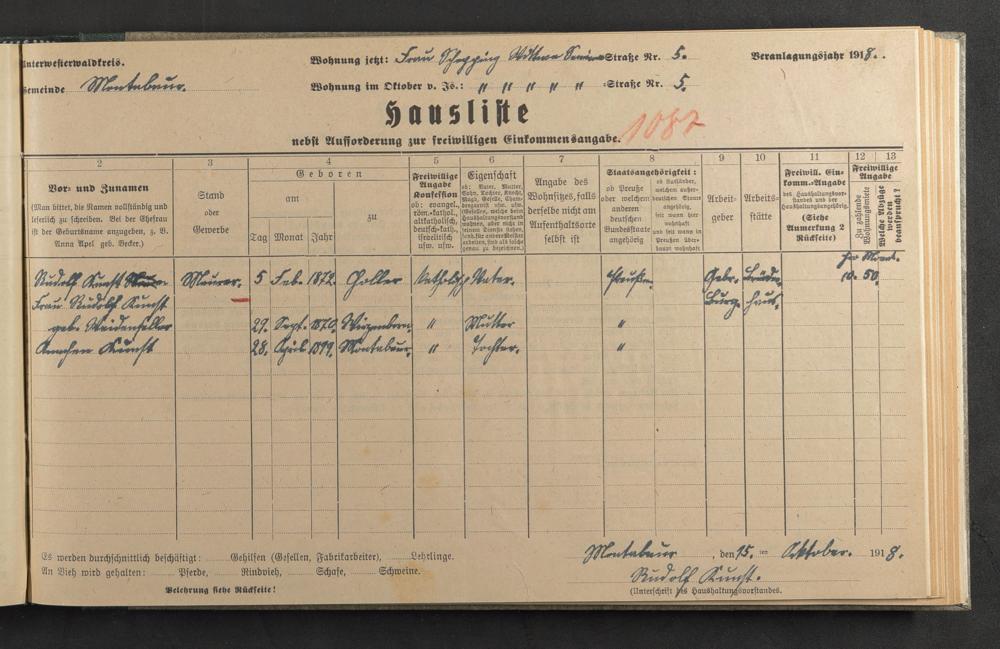 Unterwesterwaldkreis.
Wohnung jetzt: Frau Schepping Witwe Straße Nr. 5.
Veranlagungsjahr 1918.
Gemeinde Montabaur.
Wohnung im Oktober v. Js.: " " " " " -Straße Nr. 5.
Hausliste
nebst Aufforderung zur freiwilligen Einkommensangabe.
1087
2 3 4 5 6 7 8 9 10 11 12 13
Vor- und Zunamen
(Man bittet, die Namen vollständig und
leserlich zu schreiben. Bei der Ehefrau
ist der Geburtsname anzugeben, z. B.
Anna Apel geb. Becker.)
Stand
oder
Gewerbe
Geboren
am
zu
Tag Monat Jahr
Freiwillige
Angabe
Konfession
ob: evangel.,
röm.-kathol.,
altkatholisch,
deutsch-kath.,
israelitisch
usw.
Eigenschaft
ob: Vater, Mutter,
Sohn, Tochter, Knecht,
Angabe des
Wohnsitzes, falls
derselbe nicht am
Aufenthaltsorte
selbst ist
Staatsangehörigkeit:
ob Preuße
oder welchem
anderen
deutschen
Bundesstaate
angehörig
ob Ausländer,
welchem außer-
deutschen Staate
angehörig,
seit wann hier
wohnhaft
und seit wann in
Preußen über-
haupt wohnhaft
Arbeit-
geber
Arbeits-
stätte
Freiwill. Ein-
komm.-Angabe
des Haushaltungsvor-
standes und der
Haushaltungsangehörig.
(Siehe
Anmerkung 2
Rückseite)
Freiwillige
Angabe
Zu zahlende
Wohnungsmiete
Welche Abzüge
werden
beansprucht?
Rudolf Kunst Maurer. 5 Feb. 1872. Holler Katholisch Vater. Preuße. Gebr. Brüder 10. 50.
Frau Rudolf Kunst
geb. Weidenfeller 29. Sept. 1870. Wirzenborn. " Mutter "
Annchen Kunst 28. April 1899. Montabaur. " Tochter. "
Es werden durchschnittlich beschäftigt: Gehilfen (Gesellen, Fabrikarbeiter), Lehrlinge.
An Vieh wird gehalten: Pferde, Rindvieh, Schafe, Schweine.
Belehrung siehe Rückseite!
Montabaur, den 15. ten Oktober. 1918.
Rudolf Kunst.
(Unterschrift des Haushaltungsvorstandes.